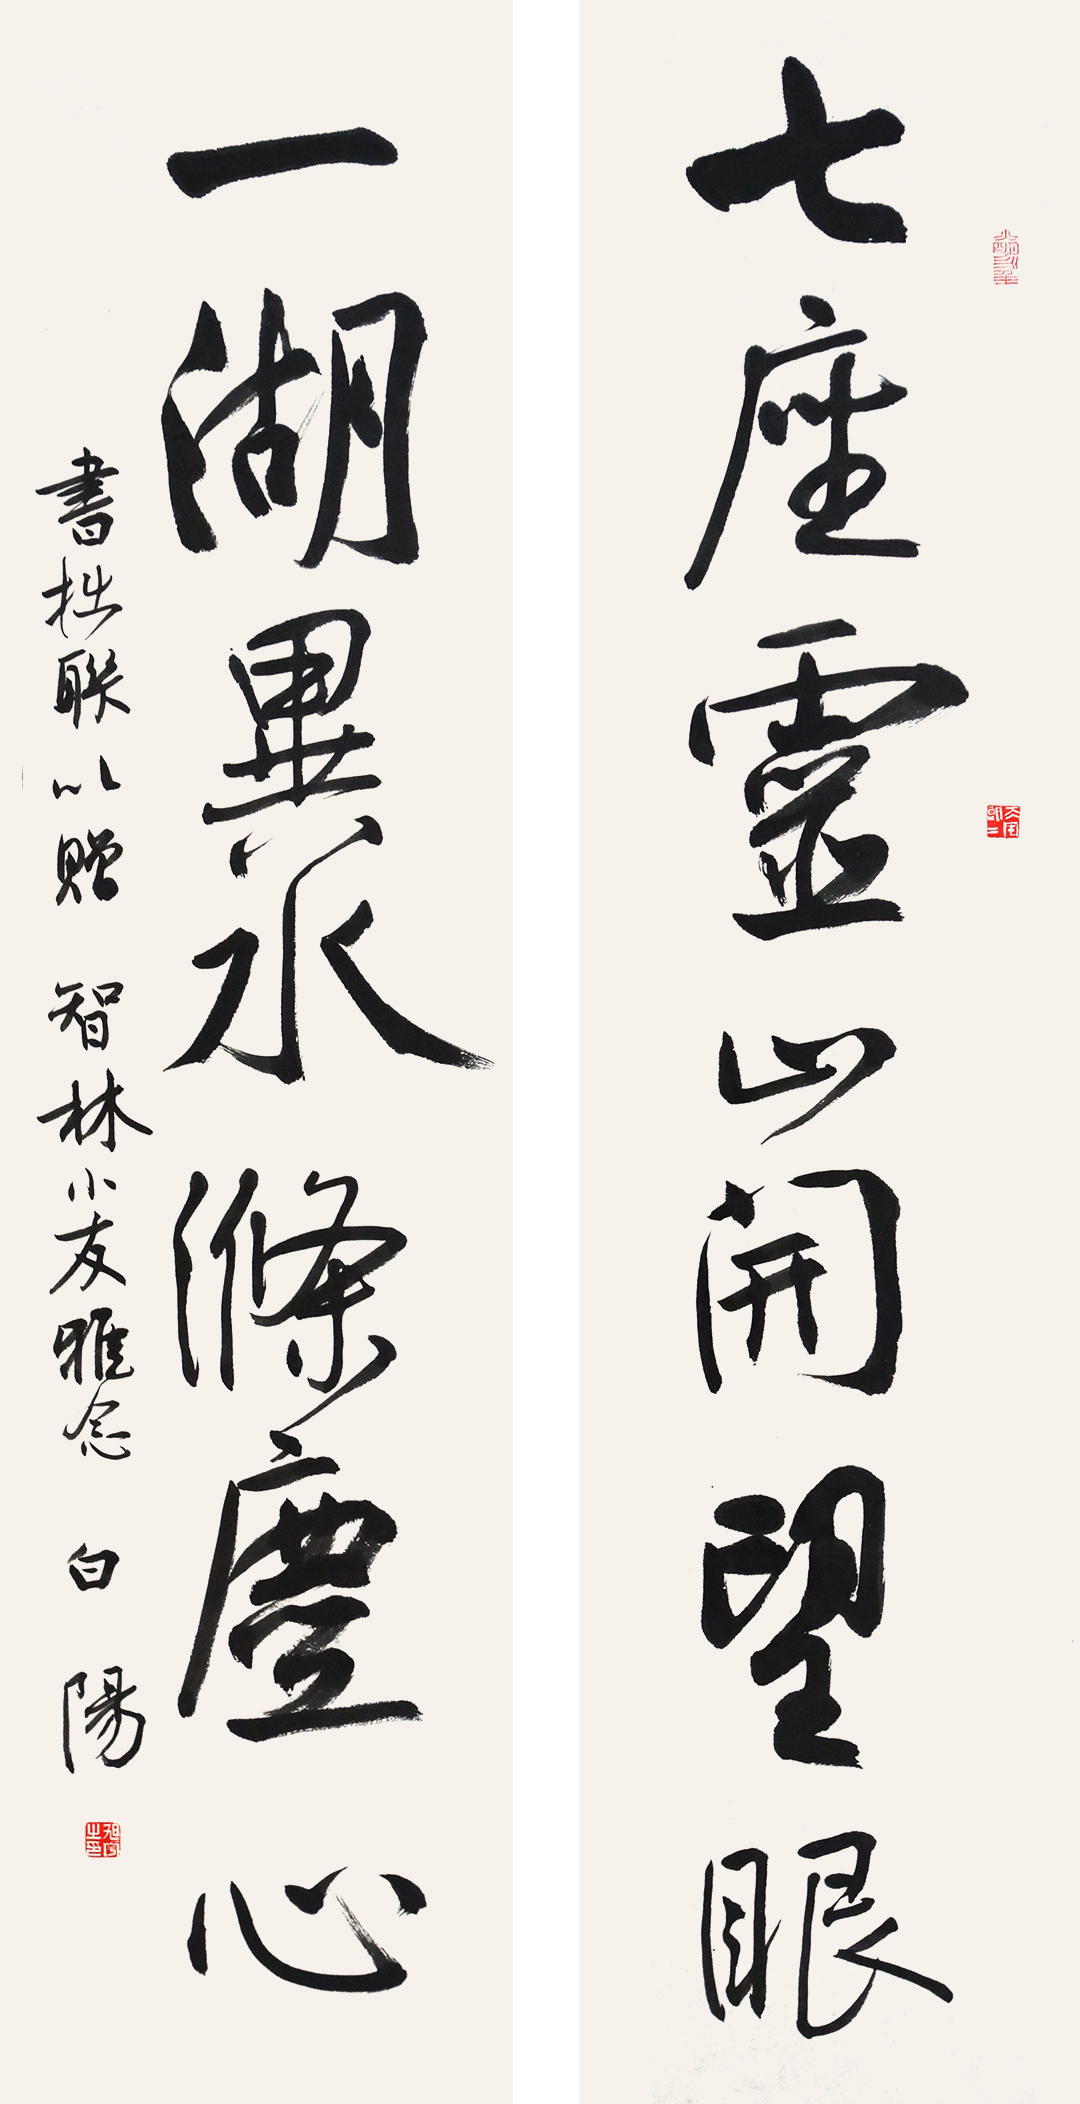 七座靈山開望眼
一湖異水滌塵心
書拙聯以贈 智林小友雅念 白陽